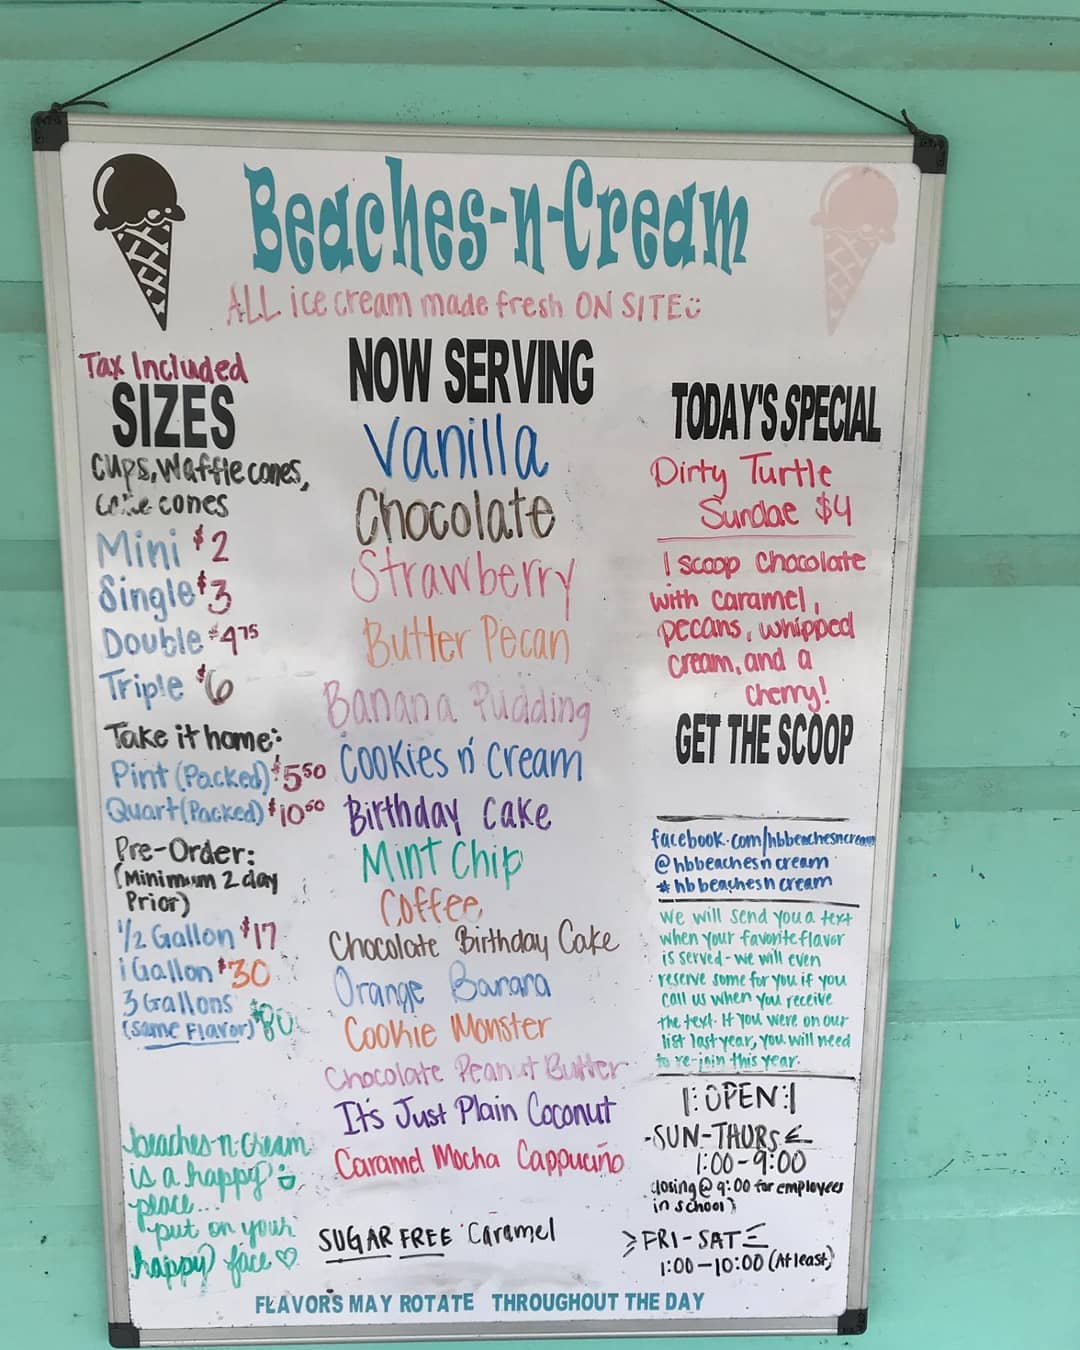 Beaches-n-Cream
ALL ice cream made fresh ON SITE
Tax Included
SIZES
Cups, Waffle cones,
cones
Mini $2
Single $3
Double $4.75
Triple $6
Take it home:
Pint (Packed) $5.50
Quart (Packed) $10.50
Pre-Order:
(Minimum 2 day
Prior)
1/2 Gallon $17
1 Gallon $30
3 Gallons
(same Flavor) $80
beaches-n-cream
is a happy
place...
put on your
happy face ♡
NOW SERVING
Vanilla
Chocolate
Strawberry
Butter Pecan
Banana Pudding
Cookies n' Cream
Birthday Cake
Mint Chip
Coffee
Chocolate Birthday Cake
Orange Banana
Cookie Monster
Chocolate Peanut Butter
It's Just Plain Coconut
Caramel Mocha Cappucino
SUGAR FREE Caramel
TODAY'S SPECIAL
Dirty Turtle
Sundae $4
1 scoop Chocolate
with caramel,
pecans, whipped
cream, and a
cherry!
GET THE SCOOP
facebook.com/hbbeachesncream
@hbbeachesncream
#hbbeachesncream
We will send you a text
when your favorite flavor
is served - we will even
reserve some for you if you
call us when you receive
the text. If you were on our
list last year, you will need
to re-join this year.
OPEN
-SUN-THURS
1:00-9:00
closing @ 9:00 for employees
in school)
FRI-SAT
1:00-10:00 (At least)
FLAVORS MAY ROTATE THROUGHOUT THE DAY